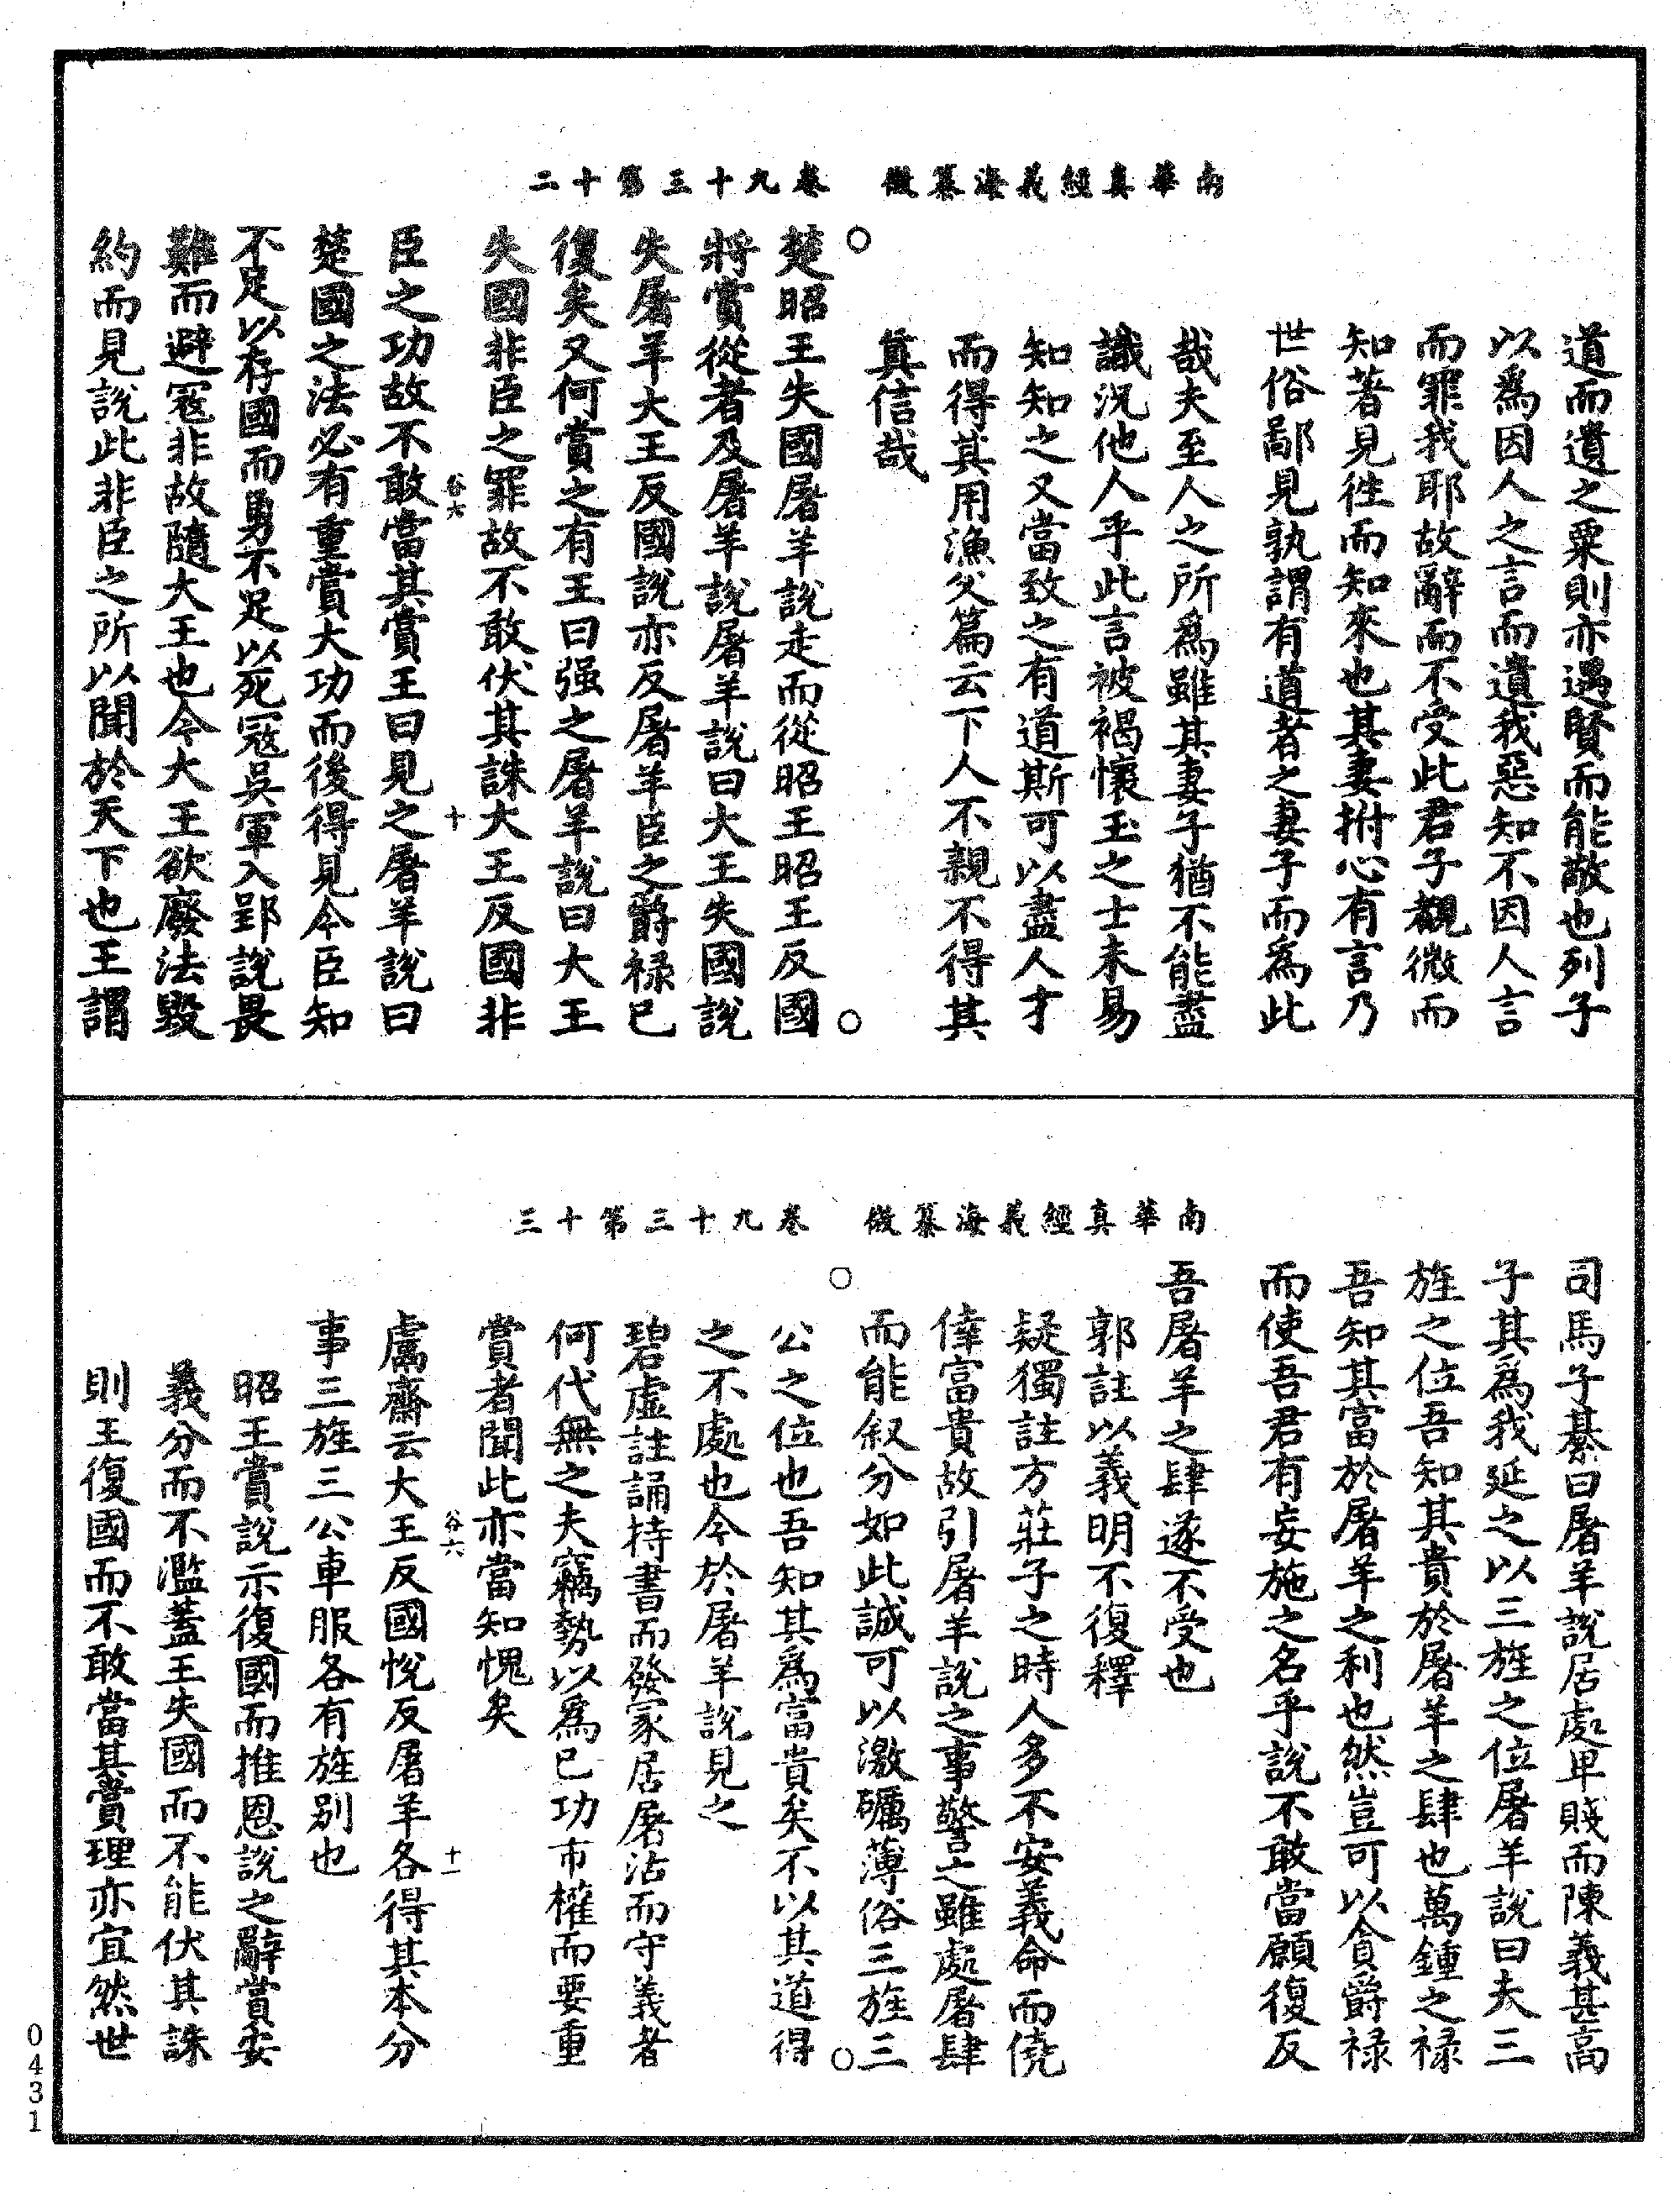 南華真經義海纂微　卷九十三第十二
道而遺之粟則亦遇賢而能敬也列子
以為因人之言而遺我惡知不因人言
而罪我耶故辭而不受此君子觀微而
知著見徃而知來也其妻拊心有言乃
世俗鄙見孰謂有道者之妻子而為此
哉夫至人之所為雖其妻子猶不能盡
識況他人乎此言被褐懷玉之士未易
知知之又當致之有道斯可以盡人才
而得其用漁父篇云下人不親不得其
真信哉
楚昭王失國屠羊說走而從昭王昭王反國
將賞從者及屠羊說屠羊說曰大王失國說
失屠羊大王反國說亦反屠羊臣之爵禄已
復矣又何賞之有王曰强之屠羊說曰大王
失國非臣之罪故不敢伏其誅大王反國非
谷六　十
臣之功故不敢當其賞王曰見之屠羊說曰
楚國之法必有重賞大功而後得見今臣知
不足以存國而勇不足以死寇吳軍入郢說畏
難而避寇非故隨大王也今大王欲廢法毀
約而見說此非臣之所以聞於天下也王謂
南華真經義海纂微　卷九十三第十三
司馬子綦曰屠羊說居處卑賤而陳義甚高
子其為我延之以三旌之位屠羊說曰夫三
旌之位吾知其貴於屠羊之肆也萬鍾之禄
吾知其富於屠羊之利也然豈可以貪爵禄
而使吾君有妄施之名乎說不敢當願復反
吾屠羊之肆遂不受也
郭註以義明不復釋
疑獨註方莊子之時人多不安義命而僥
倖富貴故引屠羊說之事警之雖處屠肆
而能叙分如此誠可以激礪薄俗三旌三
公之位也吾知其為富貴矣不以其道得
之不處也今於屠羊說見之
碧虛註誦持書而發冢居屠沽而守義者
何代無之夫竊勢以為已功市權而要重
賞者聞此亦當知愧矣
谷六　十一
鬳齋云大王反國悅反屠羊各得其本分
事三旌三公車服各有旌别也
昭王賞說示復國而推恩說之辭賞委
義分而不濫蓋王失國而不能伏其誅
則王復國而不敢當其賞理亦宜然世
0431